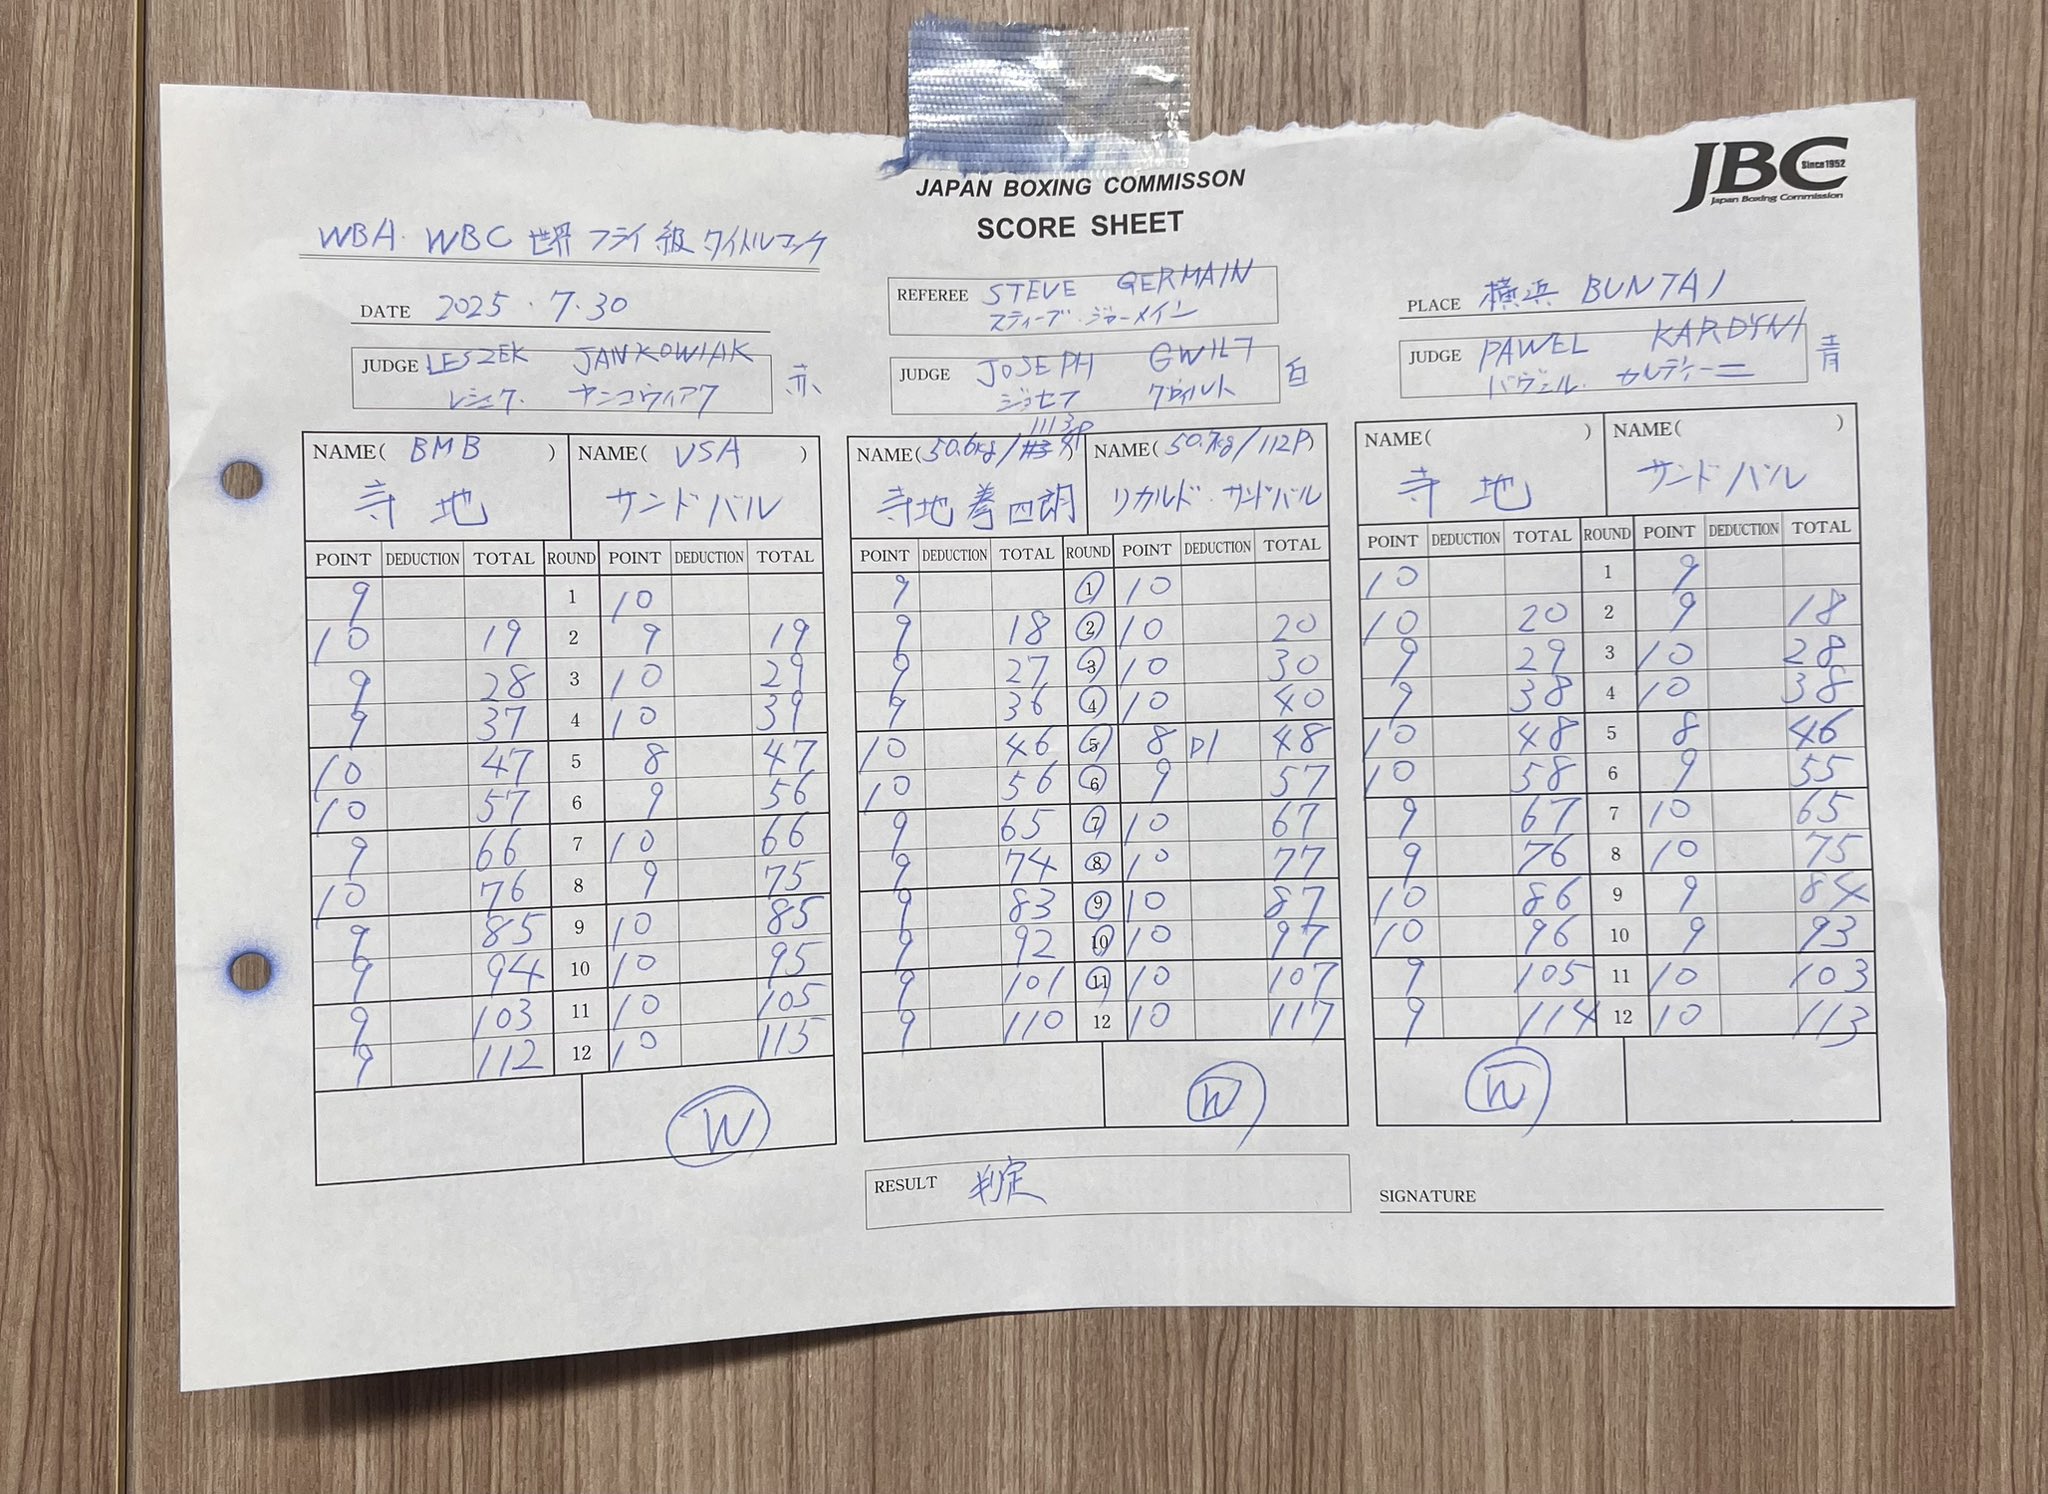 JAPAN BOXING COMMISSON
SCORE SHEET
JBC
Since 1952
Japan Boxing Commission
WBA. WBC 世界 フライ級 タイトルマッチ
DATE 2025.7.30
REFEREE STEVE GERMAIN
スティーブ・ジャーメイン
PLACE 横浜 BUNTAI
JUDGE LESZEK JANKOWIAK 赤
レシェク. ヤンコヴィアク
JUDGE JOSEPH GWILT 白
ジョセフ グウィルト
JUDGE PAWEL KARDYNI 青
パヴェル. カルディーニ
NAME( BMB ) NAME( USA )
寺地 サンドバル
NAME( 50.6kg/ 111 3/4P ) NAME( 50.7kg/112P )
寺地 拳四朗 リカルド・サンドバル
NAME( ) NAME( )
寺地 サンドバル
POINT DEDUCTION TOTAL ROUND POINT DEDUCTION TOTAL
9 1 10
10 19 2 9 19
9 28 3 10 29
9 37 4 10 39
10 47 5 8 47
10 57 6 9 56
9 66 7 10 66
10 76 8 9 75
9 85 9 10 85
9 94 10 10 95
9 103 11 10 105
9 112 12 10 115
W
POINT DEDUCTION TOTAL ROUND POINT DEDUCTION TOTAL
9 1 10
9 18 2 10 20
9 27 3 10 30
9 36 4 10 40
10 46 5 8 D1 48
10 56 6 9 57
9 65 7 10 67
9 74 8 10 77
9 83 9 10 87
9 92 10 10 97
9 101 11 10 107
9 110 12 10 117
W
POINT DEDUCTION TOTAL ROUND POINT DEDUCTION TOTAL
10 1 9
10 20 2 9 18
9 29 3 10 28
9 38 4 10 38
10 48 5 8 46
10 58 6 9 55
9 67 7 10 65
9 76 8 10 75
10 86 9 9 84
10 96 10 9 93
9 105 11 10 103
9 114 12 10 113
W
RESULT 判定
SIGNATURE